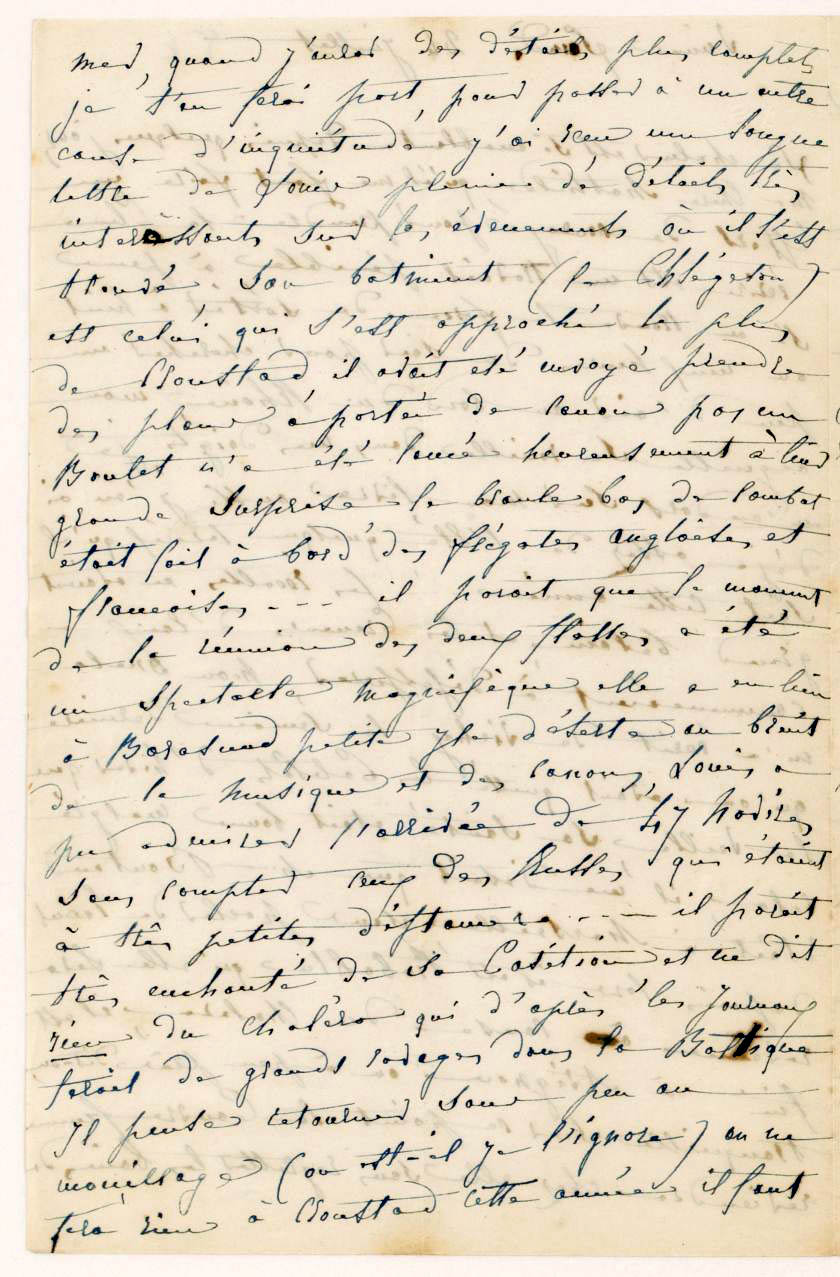 mer, quand j'aurai des détails plus complets
je t'en ferai part, pour passer à un autre
cause d'inquiétude j'ai reçu une longue
lettre de Louis pleine dé détails très
interessants sur les évenements où il s'est
trouvé, son batiment (le Phlégéton)
est celui qui s'est approché le plus
de Cronstad, il avait eté envoyé prendre
des plans à portée de canon pas un
Boulet n'a été lancé heureusement à leur
grande surprise le branle bas de combat
était fait à bord des frégates anglaises et
francaises --- il parait que le moment
de la réunion des deux flottes a été
un spectacle magnifique elle a eu lieu
à Barosund petite yle déserte au bruit
de la musique et des canons, Louis a
pu admirer l'arrivée de 47 navires
sans compter ceux des Russes qui étaient
à très petites distance --- il parait
très enchanté de sa position et ne dit
rien du choléra qui d'après les journaux
ferait de grands ravages dans la Baltique
Il pense retourner sous peu au
mouillage (ou est-il je l'ignore) on ne
fera rien à Cronstad cette année il faut